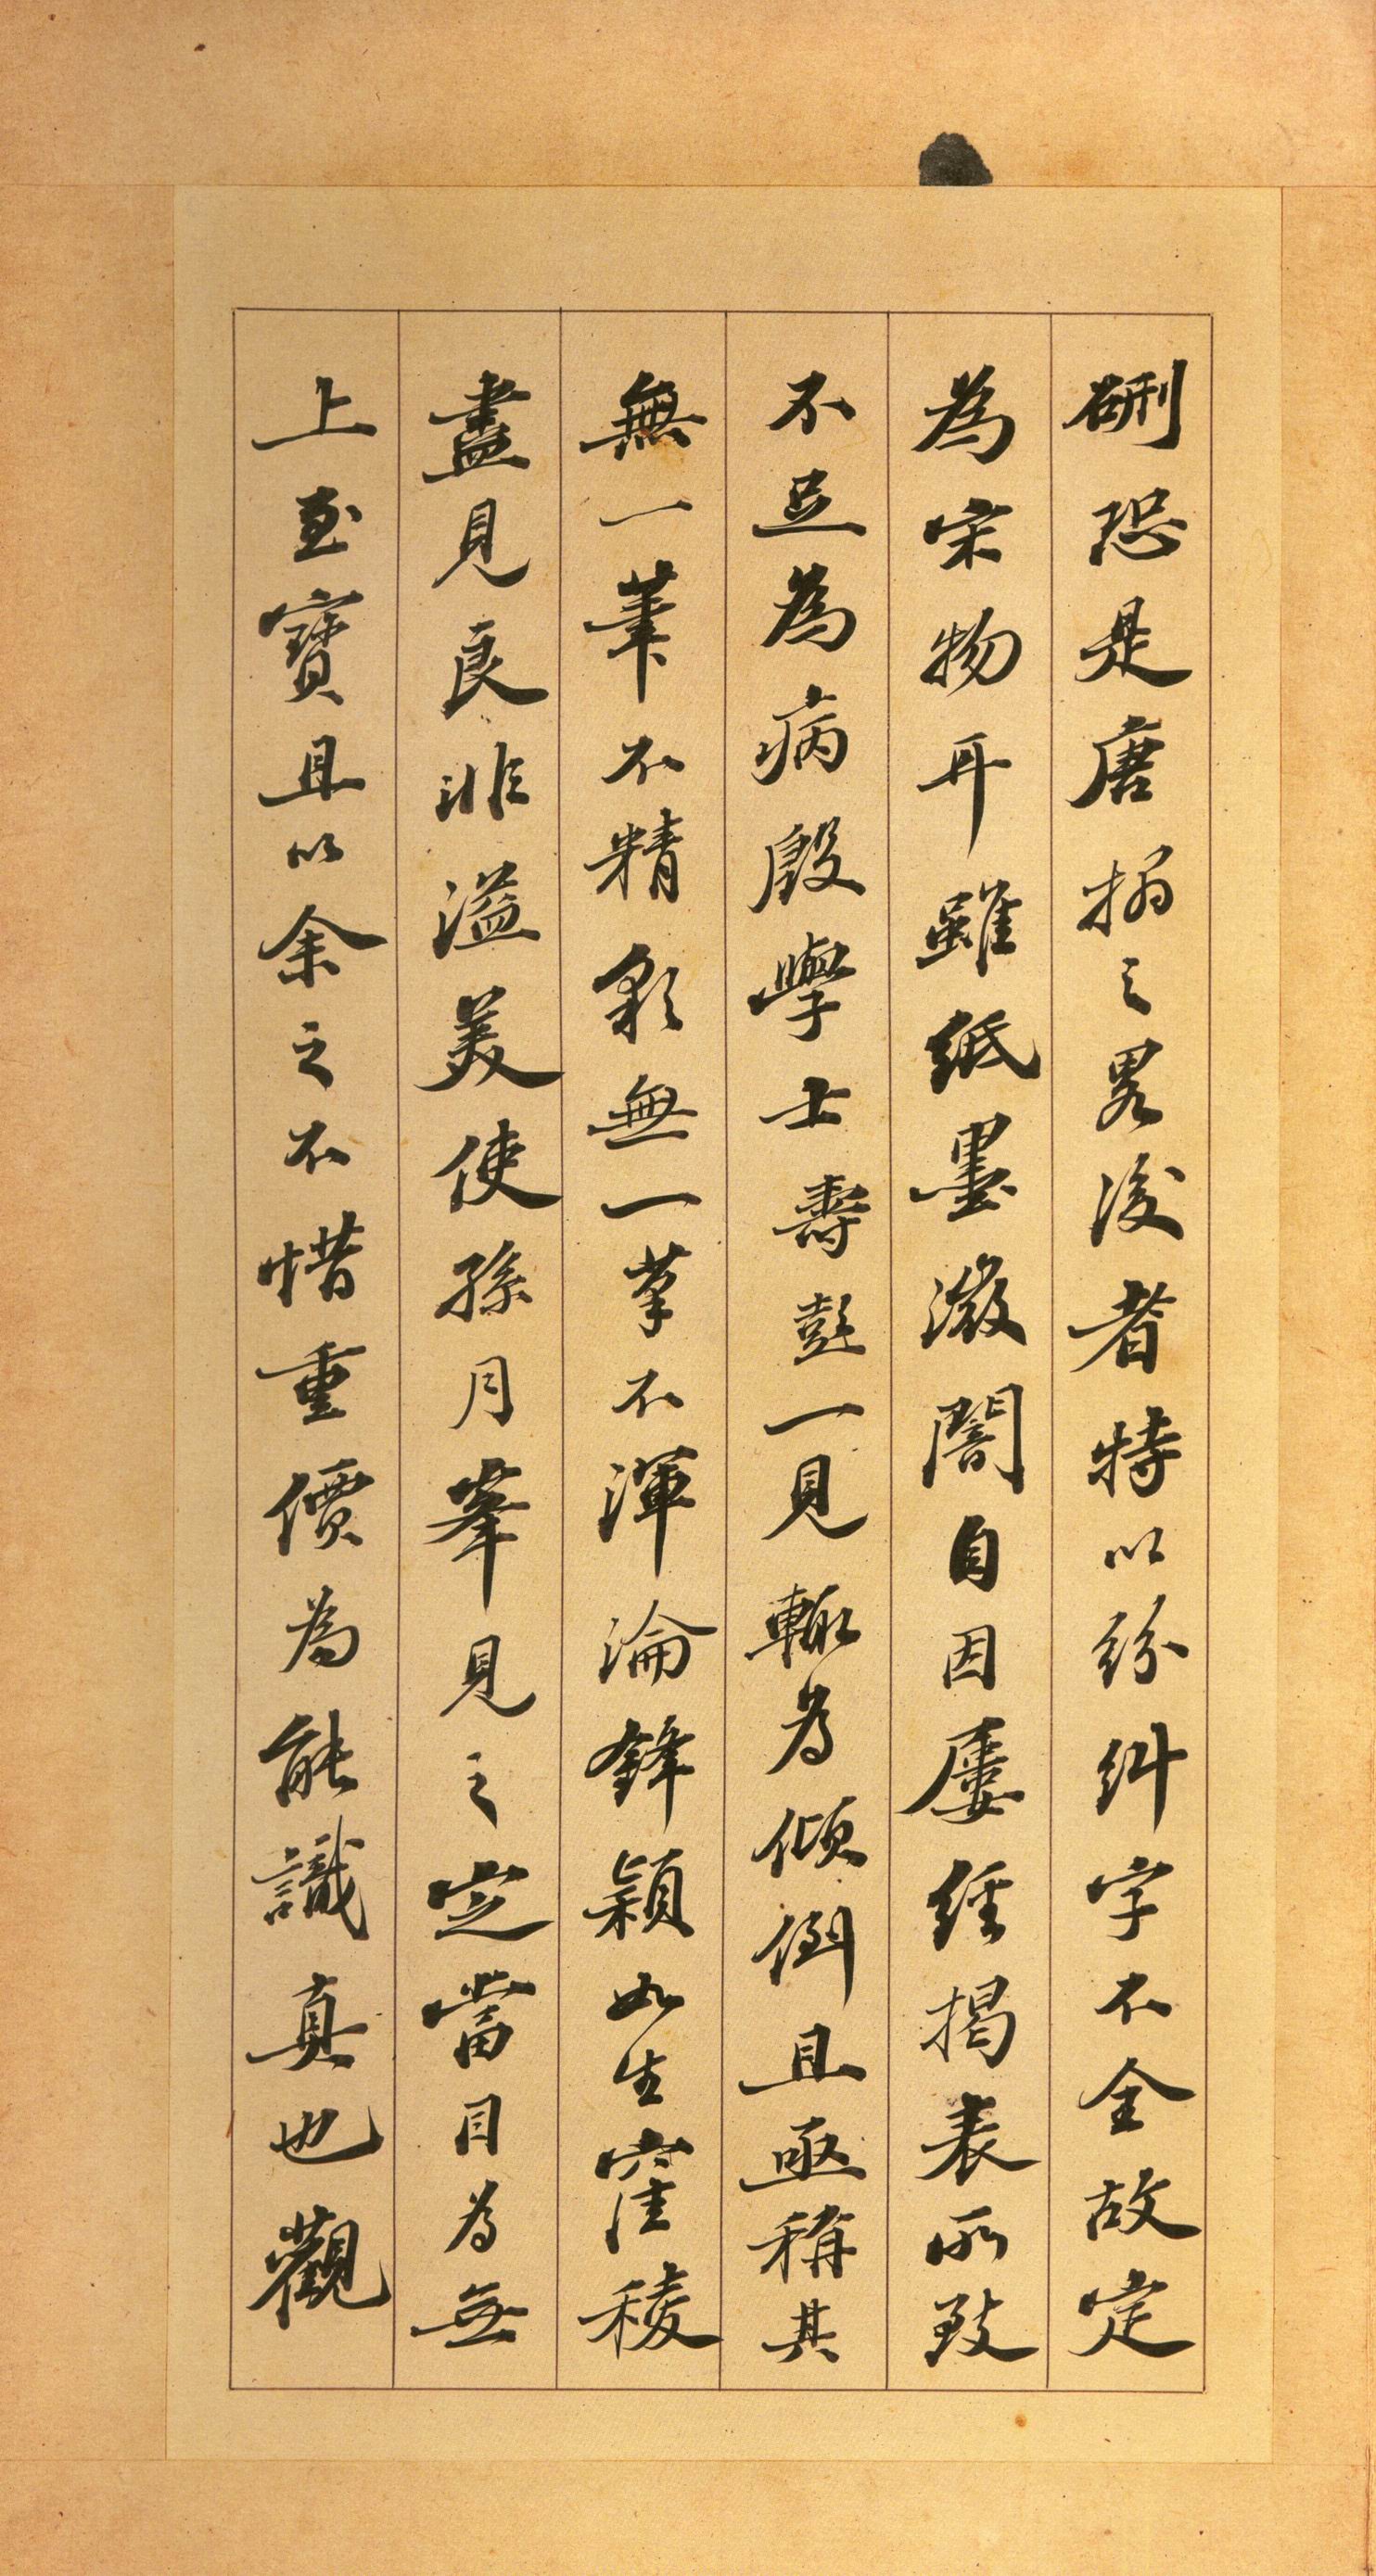 硎恐是唐搨之畧後者特以紛糾字不全故定
為宋物耳雖紙墨漵闇自因屢經揭表所致
不足為病殷學士壽彭一見輒為傾倒且亟稱其
無一筆不精彩無一筆不渾淪鋒穎如生窪稜
盡見良非溢美使孫月峯見之定當目為無
上至寶且以余之不惜重價為能識真也觀